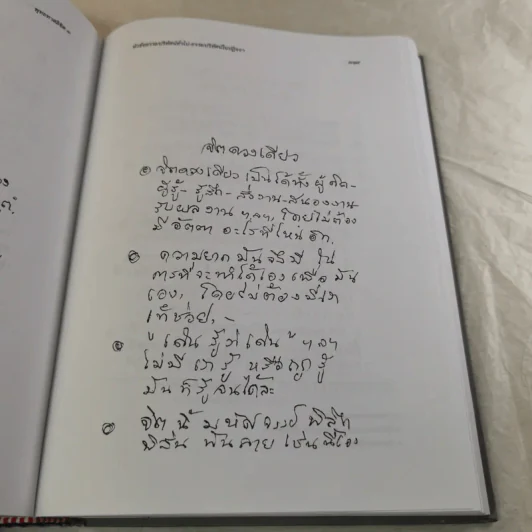 จิตดวงเดียว
จิตดวงเดียว เป็นได้ทั้ง ผู้คิด-
ผู้รู้- รู้สึก- สั่งงาน-สนองงาน
รับผลงาน ฯลฯ, โดยไม่ต้อง
มี อัตตา อะไรที่ไหน อีก.
ความยาก มันจึงมี ใน
การที่จะทำได้เอง เพื่อ มัน
เอง, โดยไม่ต้องมีเรา
"เห็น รู้ว่า เห็น" ฯลฯ
ไม่มี เรา รู้ หรือ ถูก รู้
มัน ก็ รู้ จนได้ละ
จิต นี้ มหัศจรรย์ พิลึก
พิสดาร พันลาย เช่น นี้เอง